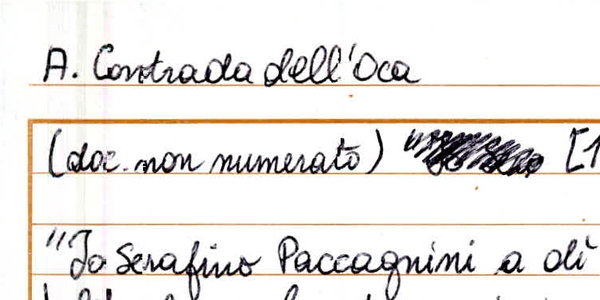 A. Contrada dell'Oca
(doc. non numerato) [1
"Io Serafino Paccagnini a dì